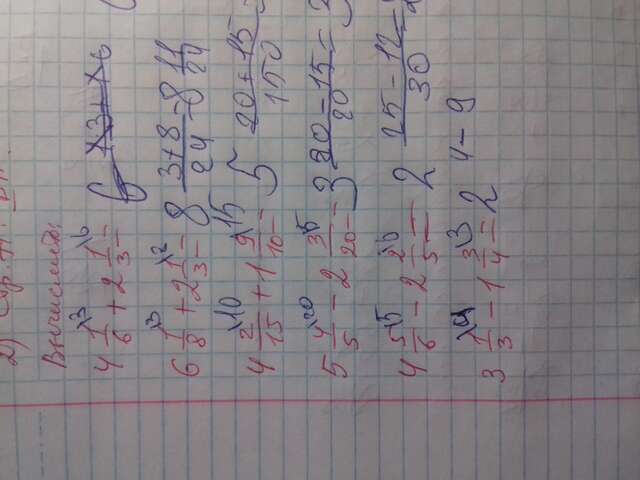 2) Стр.
Вычислить:
4 1/6 \3 + 2 1/3 \6 = 6
6 1/8 \3 + 2 1/3 \2 = 8 3+8/24 = 8 11/24
4 2/15 \10 + 1 9/10 \15 = 5 20+15/150 =
5 4/5 \20 - 2 3/20 \5 = 3 20-15/20 = 3
4 5/6 \5 - 2 2/5 \6 = 2 25-12/30 =
3 1/3 \4 - 1 3/4 \3 = 2 4-9